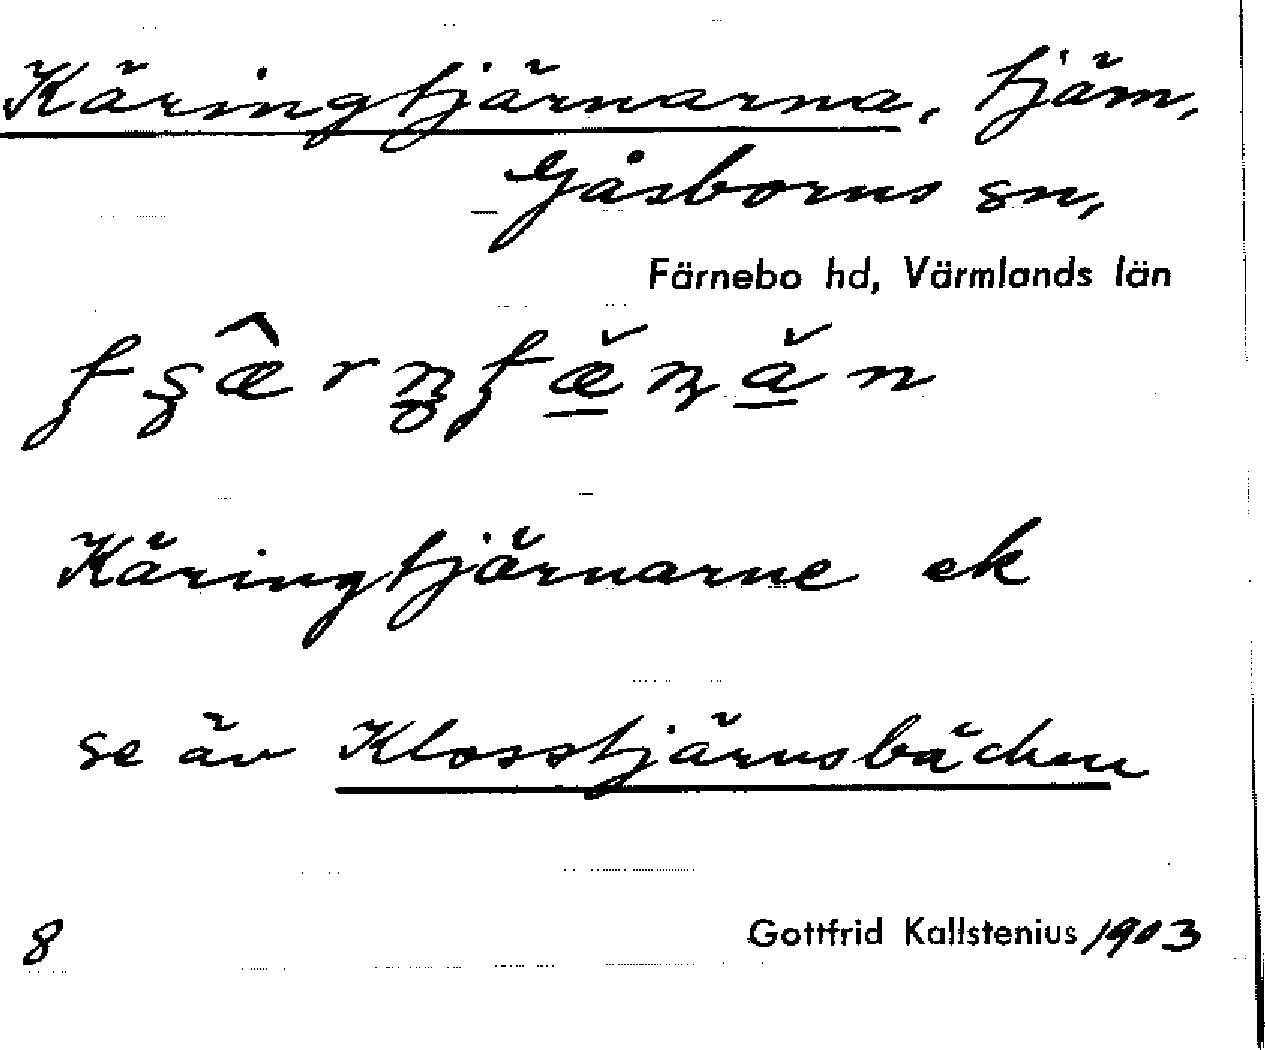 Käringtjärnarna, tjärn,
Gåsborns sn,
Färnebo hd, Värmlands län
Käringtjärnarne ek
se äv Klosstjärnsbäcken
8 Gottfrid Kallstenius 1903